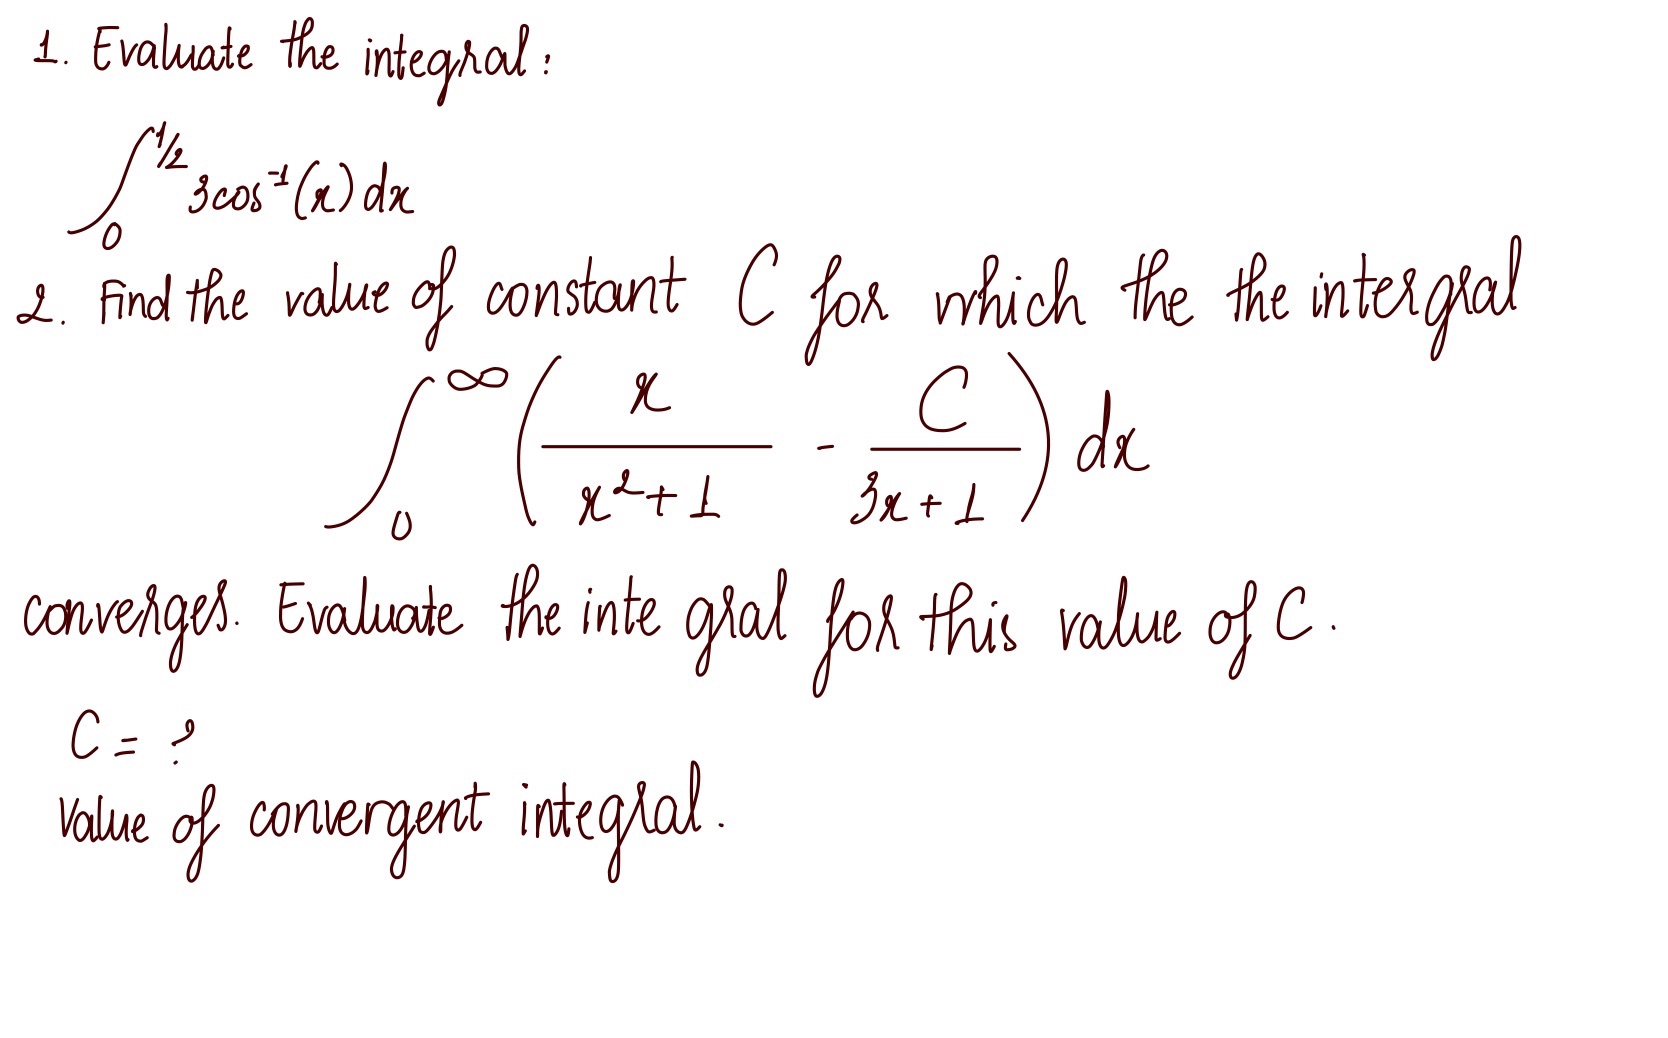 1. Evaluate the integral:
∫₀^{1/2} 3cos⁻¹(x) dx
2. Find the value of constant C for which the the intergral
∫₀^∞ (x/(x²+1) - C/(3x+1)) dx
converges. Evaluate the inte gral for this value of C.
C = ?
Value of convergent integral.